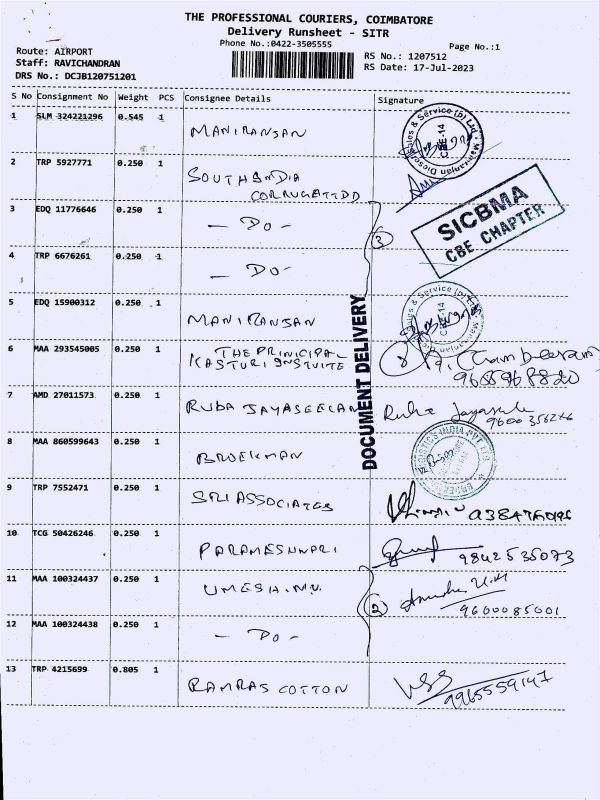 THE PROFESSIONAL COURIERS, COIMBATORE
Delivery Runsheet - SITR
Phone No.:0422-3505555
Page No.:1
Route: AIRPORT
RS No.: 1207512
Staff: RAVICHANDRAN
RS Date: 17-Jul-2023
DRS No.: DCJB120751201
S No Consignment No Weight PCS Consignee Details Signature
1 SLM 324221296 0.545 1 MANIRANJAN
2 TRP 5927771 0.250 1 SOUTH INDIA
CORRUGATTDD
3 EDQ 11776646 0.250 1 - DO -
4 TRP 6676261 0.250 1 - DO -
3
SICBMA
CBE CHAPTER
5 EDQ 15900312 0.250 1 MANIRANJAN
CBE-14
DOCUMENT DELIVERY
6 MAA 293545005 0.250 1 THE PRINICIPAL
KASTURI INSTUITE
7 AMD 27011573 0.250 1 RUBA JAYASEELAN
9600356276
8 MAA 860599643 0.250 1 BROEKMAN
9 TRP 7552471 0.250 1 SRI ASSOCIATES
10 TCG 50426246 0.250 1 PARAMESHWARI 9842535073
11 MAA 100324437 0.250 1 UMESH.M.V.
2
9600085001
12 MAA 100324438 0.250 1 - DO -
13 TRP 4215699 0.805 1 RAMRAS COTTON
9965559147